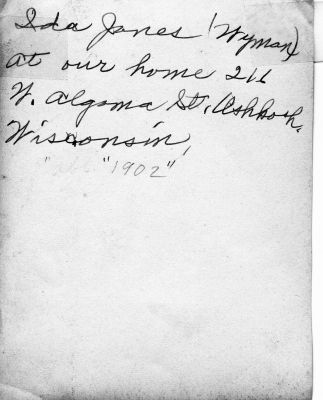 Ida Janes (Wyman)
at our home 211
W. Algoma St., Oshkosh,
Wisconsin,
"1902"